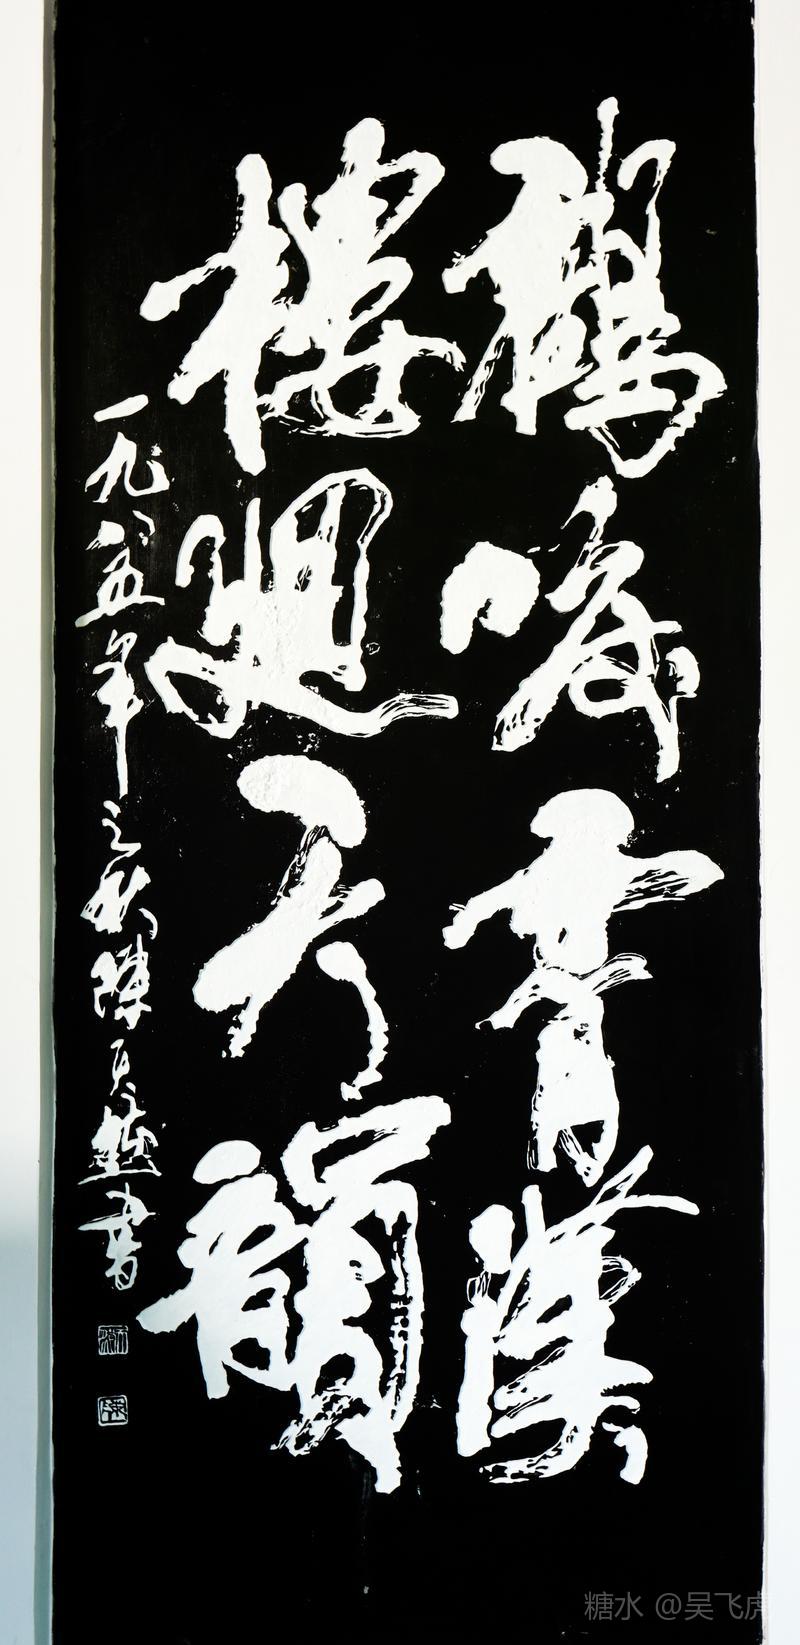 鶴唳青漢
樓迴天韻
一九八五年之秋陳天然書
糖水 @吴飞虎